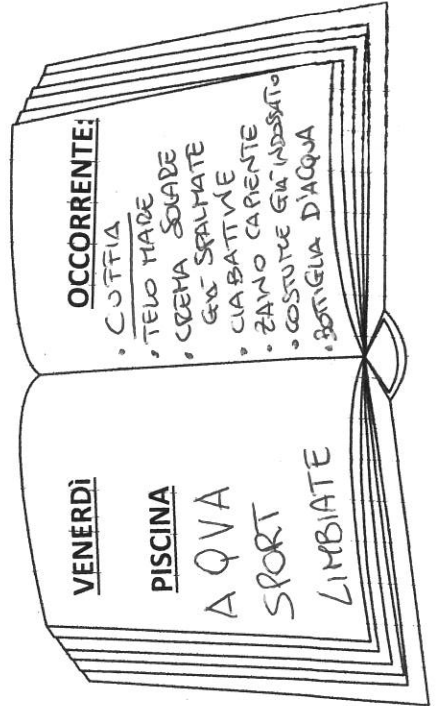 VENERDÌ
PISCINA
AQVA
SPORT
LIMBIATE
OCCORRENTE:
• CUFFIA
• TELO MARE
• CREMA SOLARE
GIÀ SPALMATE
• CIABATTINE
• ZAINO CAPIENTE
• COSTUME GIÀ INDOSSATO
• BOTTIGLIA D'ACQUA